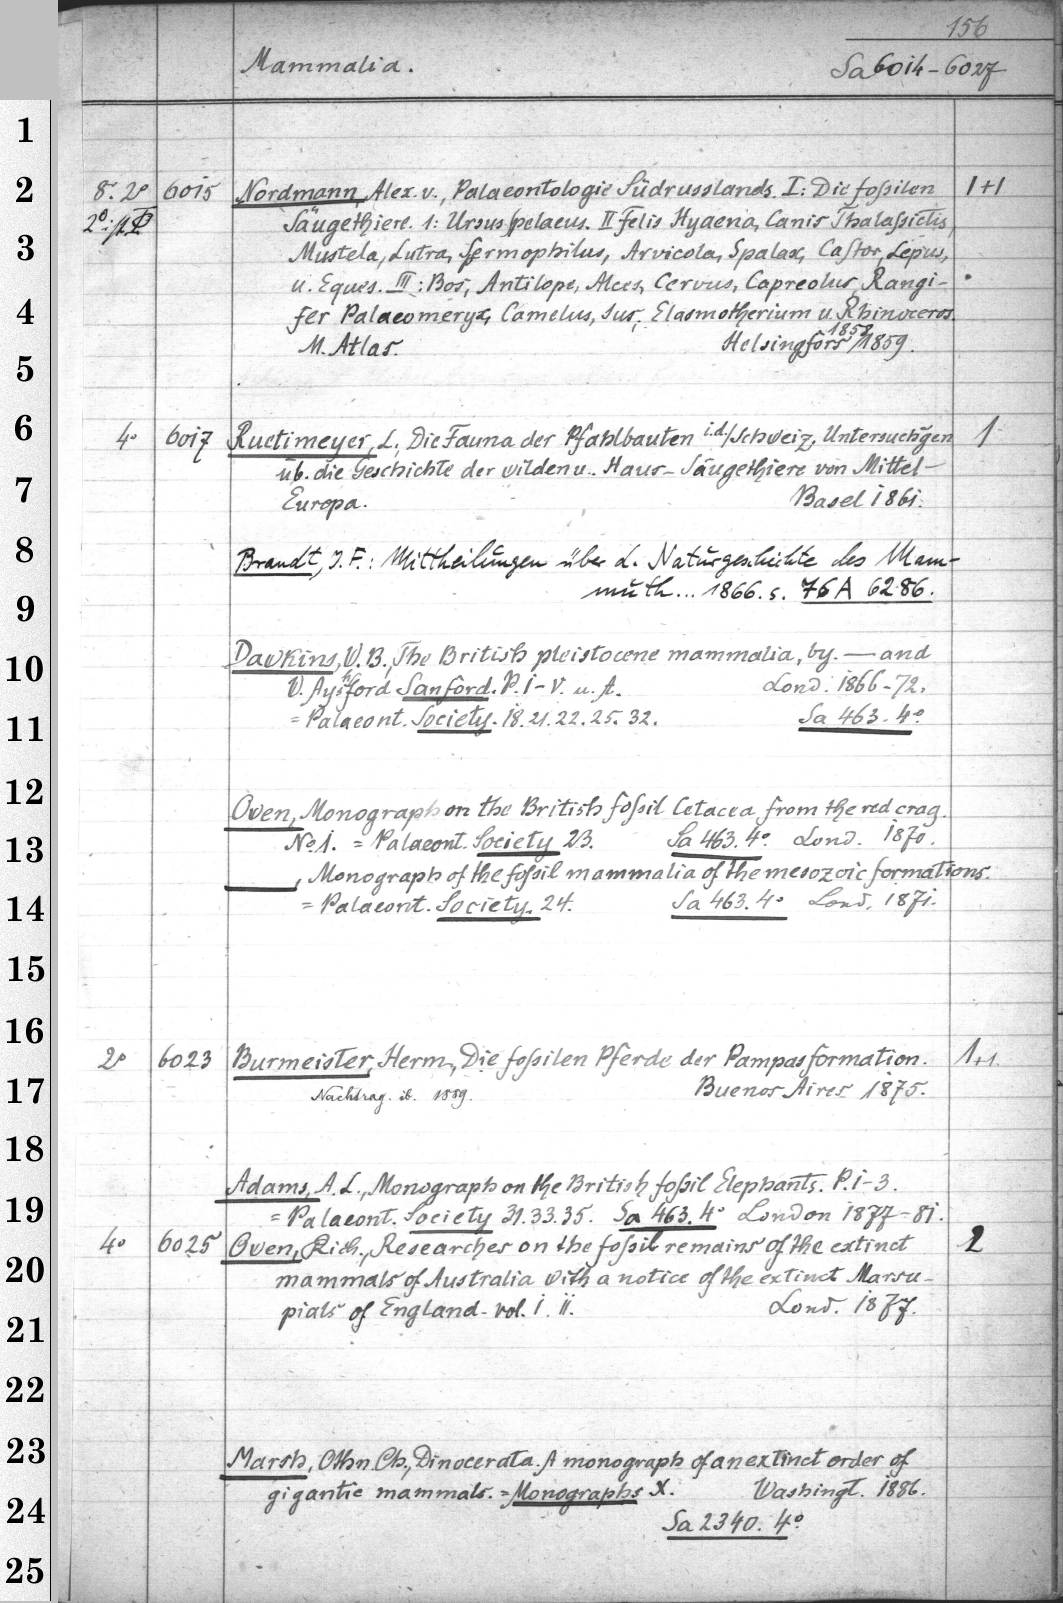 156
Mammalia. Sa 6014-6027
1
2
3
4
5
6
7
8
9
10
11
12
13
14
15
16
17
18
19
20
21
22
23
24
25
8º. 2º 6015 Nordmann, Alex. v., Palaeontologie Südrusslands. I: Die foſsilen 1+1
2º: Säugethiere. 1: Ursus spelaeus. II Felis Hyaena, Canis Thalaſsictis,
Mustela, Lutra, Spermophilus, Arvicola, Spalax, Castor, Lepus,
u. Eques. III: Bos, Antilope, Alces, Cervus, Capreolus, Rangi-
fer Palaeomeryx, Camelus, Sus, Elasmotherium u. Rhinoceros.
M. Atlas. Helsingfors 1858/1859.
4º 6017 Ruetimeyer, L., Die Fauna der Pfahlbauten i.d./Schweiz, Untersuchūgen 1
üb. die Geschichte der wilden u. Haus-Säugethiere von Mittel-
Europa. Basel 1861.
Brandt, J. F.: Mittheilungen über d. Naturgeschichte des Mam-
muth... 1866. s. 76 A 6286.
Dawkins, W. B., The British pleistocene mammalia, by. — and
W. Ayshford Sanford. P. I-V. u. A. Lond. 1866-72.
= Palaeont. Society. 18. 21. 22. 25. 32. Sa 463. 4º
Owen, Monograph on the British foſsil Cetacea from the red crag.
Nº 1. = Palaeont. Society 23. Sa 463. 4º Lond. 1870.
____, Monograph of the foſsil mammalia of the mesozoic formations.
= Palaeont. Society. 24. Sa 463. 4º Lond. 1871.
2º 6023 Burmeister, Herm., Die foſsilen Pferde der Pampasformation. 1+1.
Nachtrag. ib. 1889. Buenos Aires 1875.
Adams, A. L., Monograph on the British foſsil Elephants. P. 1-3.
= Palaeont. Society 31. 33. 35. Sa 463. 4º London 1877-81.
4º 6025 Owen, Rich., Researches on the foſsil remains of the extinct 2
mammals of Australia with a notice of the extinct Marsu-
pials of England. vol. I. II. Lond. 1877.
Marsh, Othn. Ch., Dinocerata. A monograph of an extinct order of
gigantic mammals. = Monographs X. Washingt. 1886.
Sa 2340. 4º